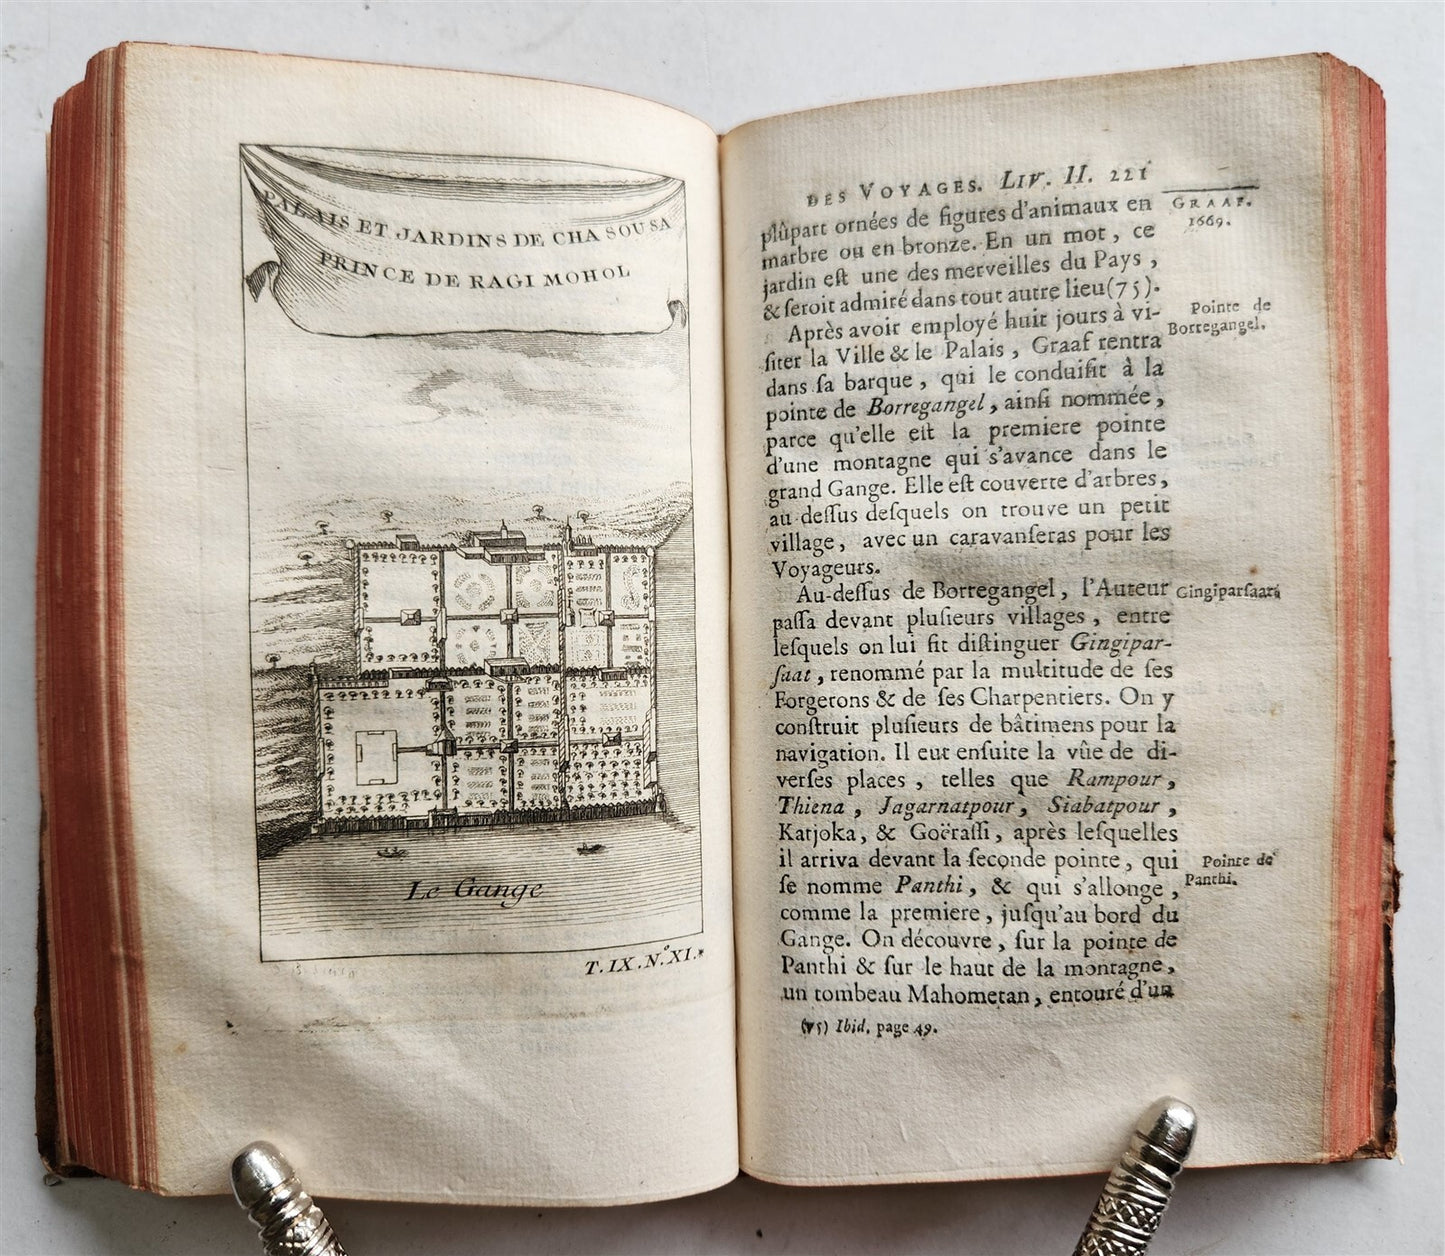 PALAIS ET JARDINS DE CHA SOUSA
PRINCE DE RAGI MOHOL
Le Gange
T. IX. N.º XI.*
DES VOYAGES. LIV. II. 221
GRAAF.
1669.
plûpart ornées de figures d'animaux en
marbre ou en bronze. En un mot, ce
jardin eſt une des merveilles du Pays,
& ſeroit admiré dans tout autre lieu (75).
Après avoir employé huit jours à vi-
ſiter la Ville & le Palais, Graaf rentra
dans ſa barque, qui le conduiſit à la
pointe de Borregangel, ainſi nommée,
parce qu'elle eſt la premiere pointe
d'une montagne qui s'avance dans le
grand Gange. Elle eſt couverte d'arbres,
au-deſſus deſquels on trouve un petit
village, avec un caravanſeras pour les
Voyageurs.
Pointe de
Borregangel.
Au-deſſus de Borregangel, l'Auteur
paſſa devant pluſieurs villages, entre
leſquels on lui fit diſtinguer Gingipar-
ſaat, renommé par la multitude de ſes
Forgerons & de ſes Charpentiers. On y
conſtruit pluſieurs de bâtimens pour la
navigation. Il eut enſuite la vûe de di-
verſes places, telles que Rampour,
Thiena, Jagarnatpour, Siabatpour,
Katjoka, & Goëraſſi, après leſquelles
il arriva devant la ſeconde pointe, qui
ſe nomme Panthi, & qui s'allonge,
comme la premiere, juſqu'au bord du
Gange. On découvre, ſur la pointe de
Panthi & ſur le haut de la montagne,
un tombeau Mahometan, entouré d'un
Gingiparſaat
Pointe de
Panthi.
(75) Ibid, page 49.